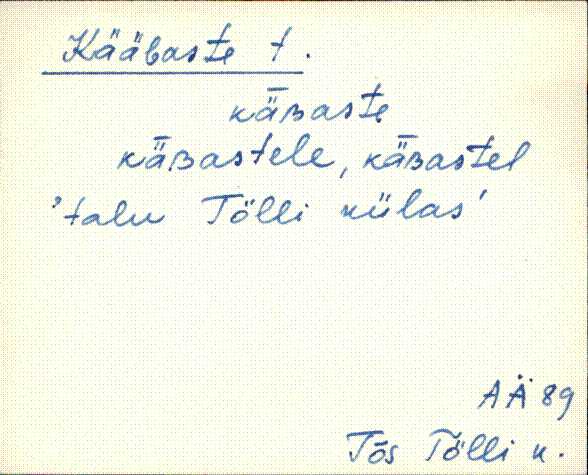 Kääbaste t.
kǟʙaste
kǟʙastele, kǟʙastel
'talu Tõlli külas'
AÄ 89
Tõs Tõlli k.